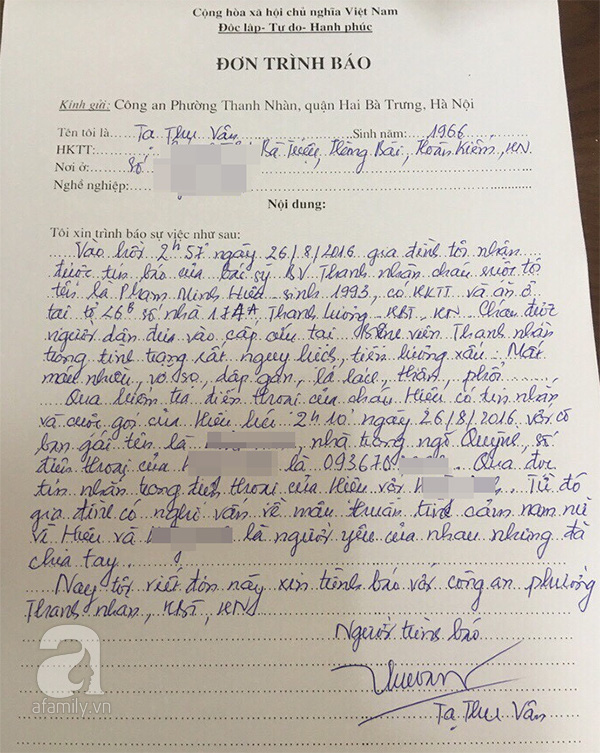 Cộng hòa xã hội chủ nghĩa Việt Nam
Độc lập- Tự do- Hanh phúc
ĐƠN TRÌNH BÁO
Kính gửi: Công an Phường Thanh Nhàn, quận Hai Bà Trưng, Hà Nội
Tên tôi là Tạ Thu Vân Sinh năm: 1966
HKTT: Bà Triệu, Hàng Bài, Hoàn Kiếm, HN
Nơi ở: Số
Nghề nghiệp:
Nội dung:
Tôi xin trình báo sự việc như sau:
Vào hồi 2h57' ngày 26/8/2016 gia đình tôi nhận
được tin báo của bác sỹ BV Thanh nhàn cháu ruột tôi
tên là Phạm Minh Hiếu sinh 1993, có HKTT và ăn ở
tại tổ 26B số nhà 17A4, Thanh Lương, HBT, HN. Cháu được
người dân đưa vào cấp cứu tại Bệnh viện Thanh nhàn
trong tình trạng rất nguy kịch, tiên lượng xấu. Mất
máu nhiều, vỡ sọ, dập gan, lá lách, thận, phổi
Qua kiểm tra điện thoại của cháu Hiếu có tin nhắn
và cuộc gọi của Hiếu lúc 2h10' ngày 26/8/2016 với cô
bạn gái tên là nhà trong ngõ Quỳnh, số
điện thoại của H là 093670. Qua đọc
tin nhắn trong điện thoại của Hiếu với H. Từ đó
gia đình có nghi vấn về mâu thuẫn tình cảm nam nữ
vì Hiếu và là người yêu của nhau nhưng đã
chia tay.
Nay tôi viết đơn này xin trình báo với công an phường
Thanh nhàn, HBT, HN
Người trình báo
Tạ Thu Vân
a
afamily.vn